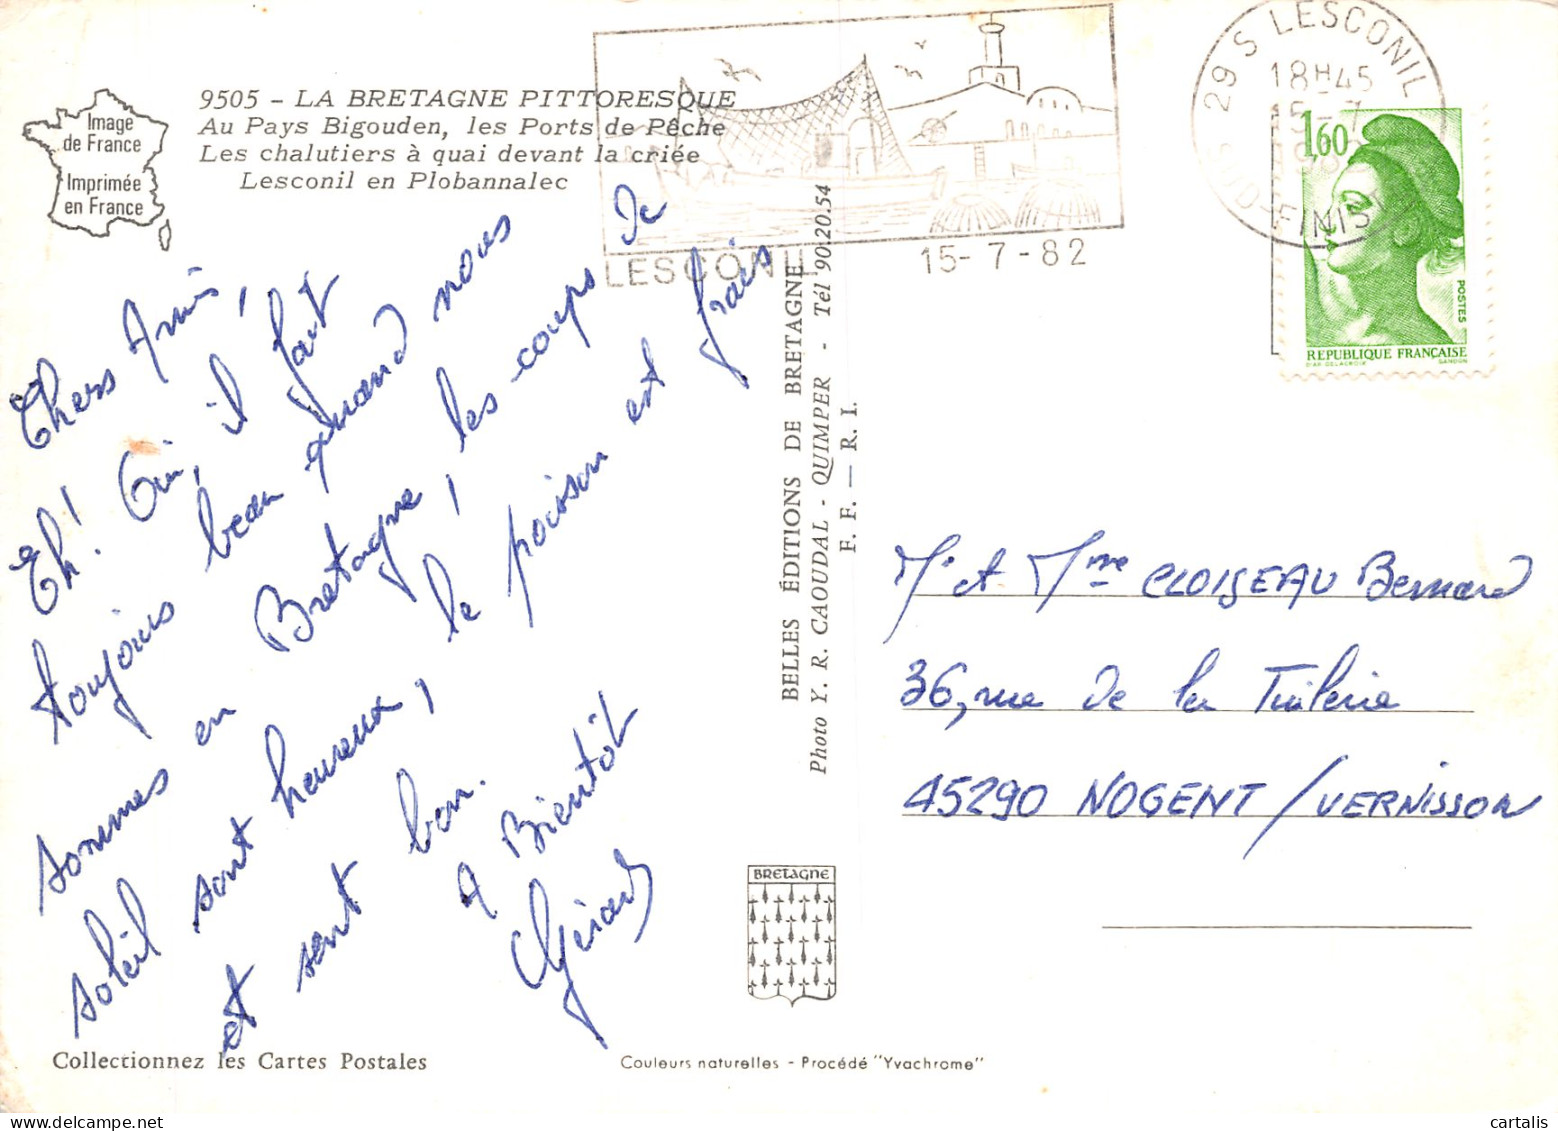 Image
de France
Imprimée
en France
9505 - LA BRETAGNE PITTORESQUE
Au Pays Bigouden, les Ports de Pêche
Les chalutiers à quai devant la criée
Lesconil en Plobannalec
LESCONIL
15-7-82
29 S LESCONIL
18H45
15-7
SUD-FINIST
1,60
POSTES
REPUBLIQUE FRANÇAISE
D'AP. DELACROIX GANDON
Chers Amis,
Eh! Oui, il fait
toujours beau quand nous
sommes en Bretagne, les coups de
soleil sont heureux, le poisson est frais
et sent bon.
A Bientôt
Gérard
BELLES ÉDITIONS DE BRETAGNE
Photo Y. R. CAOUDAL - QUIMPER - Tél 90.20.54
F. F. — R. I.
Mr et Mme CLOISEAU Bernard
36, rue de la Tuilerie
45290 NOGENT/VERNISSON
BRETAGNE
Collectionnez les Cartes Postales
Couleurs naturelles - Procédé "Yvachrome"
cartalis